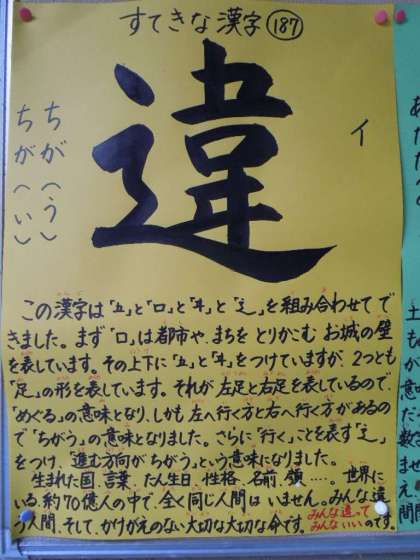 すてきな漢字 187
違
イ
ちが(う)
ちが(い)
この漢字は「㐄」と「口」と「㐄」と「辶」を組み合わせてで
きました。まず「口」は都市や、まちをとりかこむお城の壁
を表しています。その上下に「㐄」と「㐄」をつけていますが、2つとも
「足」の形を表しています。それが左足と右足を表しているので、
「めぐる」の意味となり、しかも左へ行く方と右へ行く方があるの
で「ちがう」の意味となりました。さらに「行く」ことを表す「辶」
をつけ、「進む方向がちがう」という意味になりました。
生まれた国、言葉、たん生日、性格、名前、顔‥‥。世界に
いる約70億人の中で、全く同じ人間はいません。みんな違
う人間、そして、かけがえのない大切な大切な命です。みんな違って
みんないいのです。